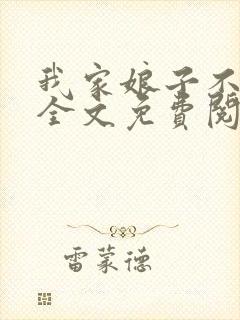 我家娘子不
全文免費閱
雷蒙德